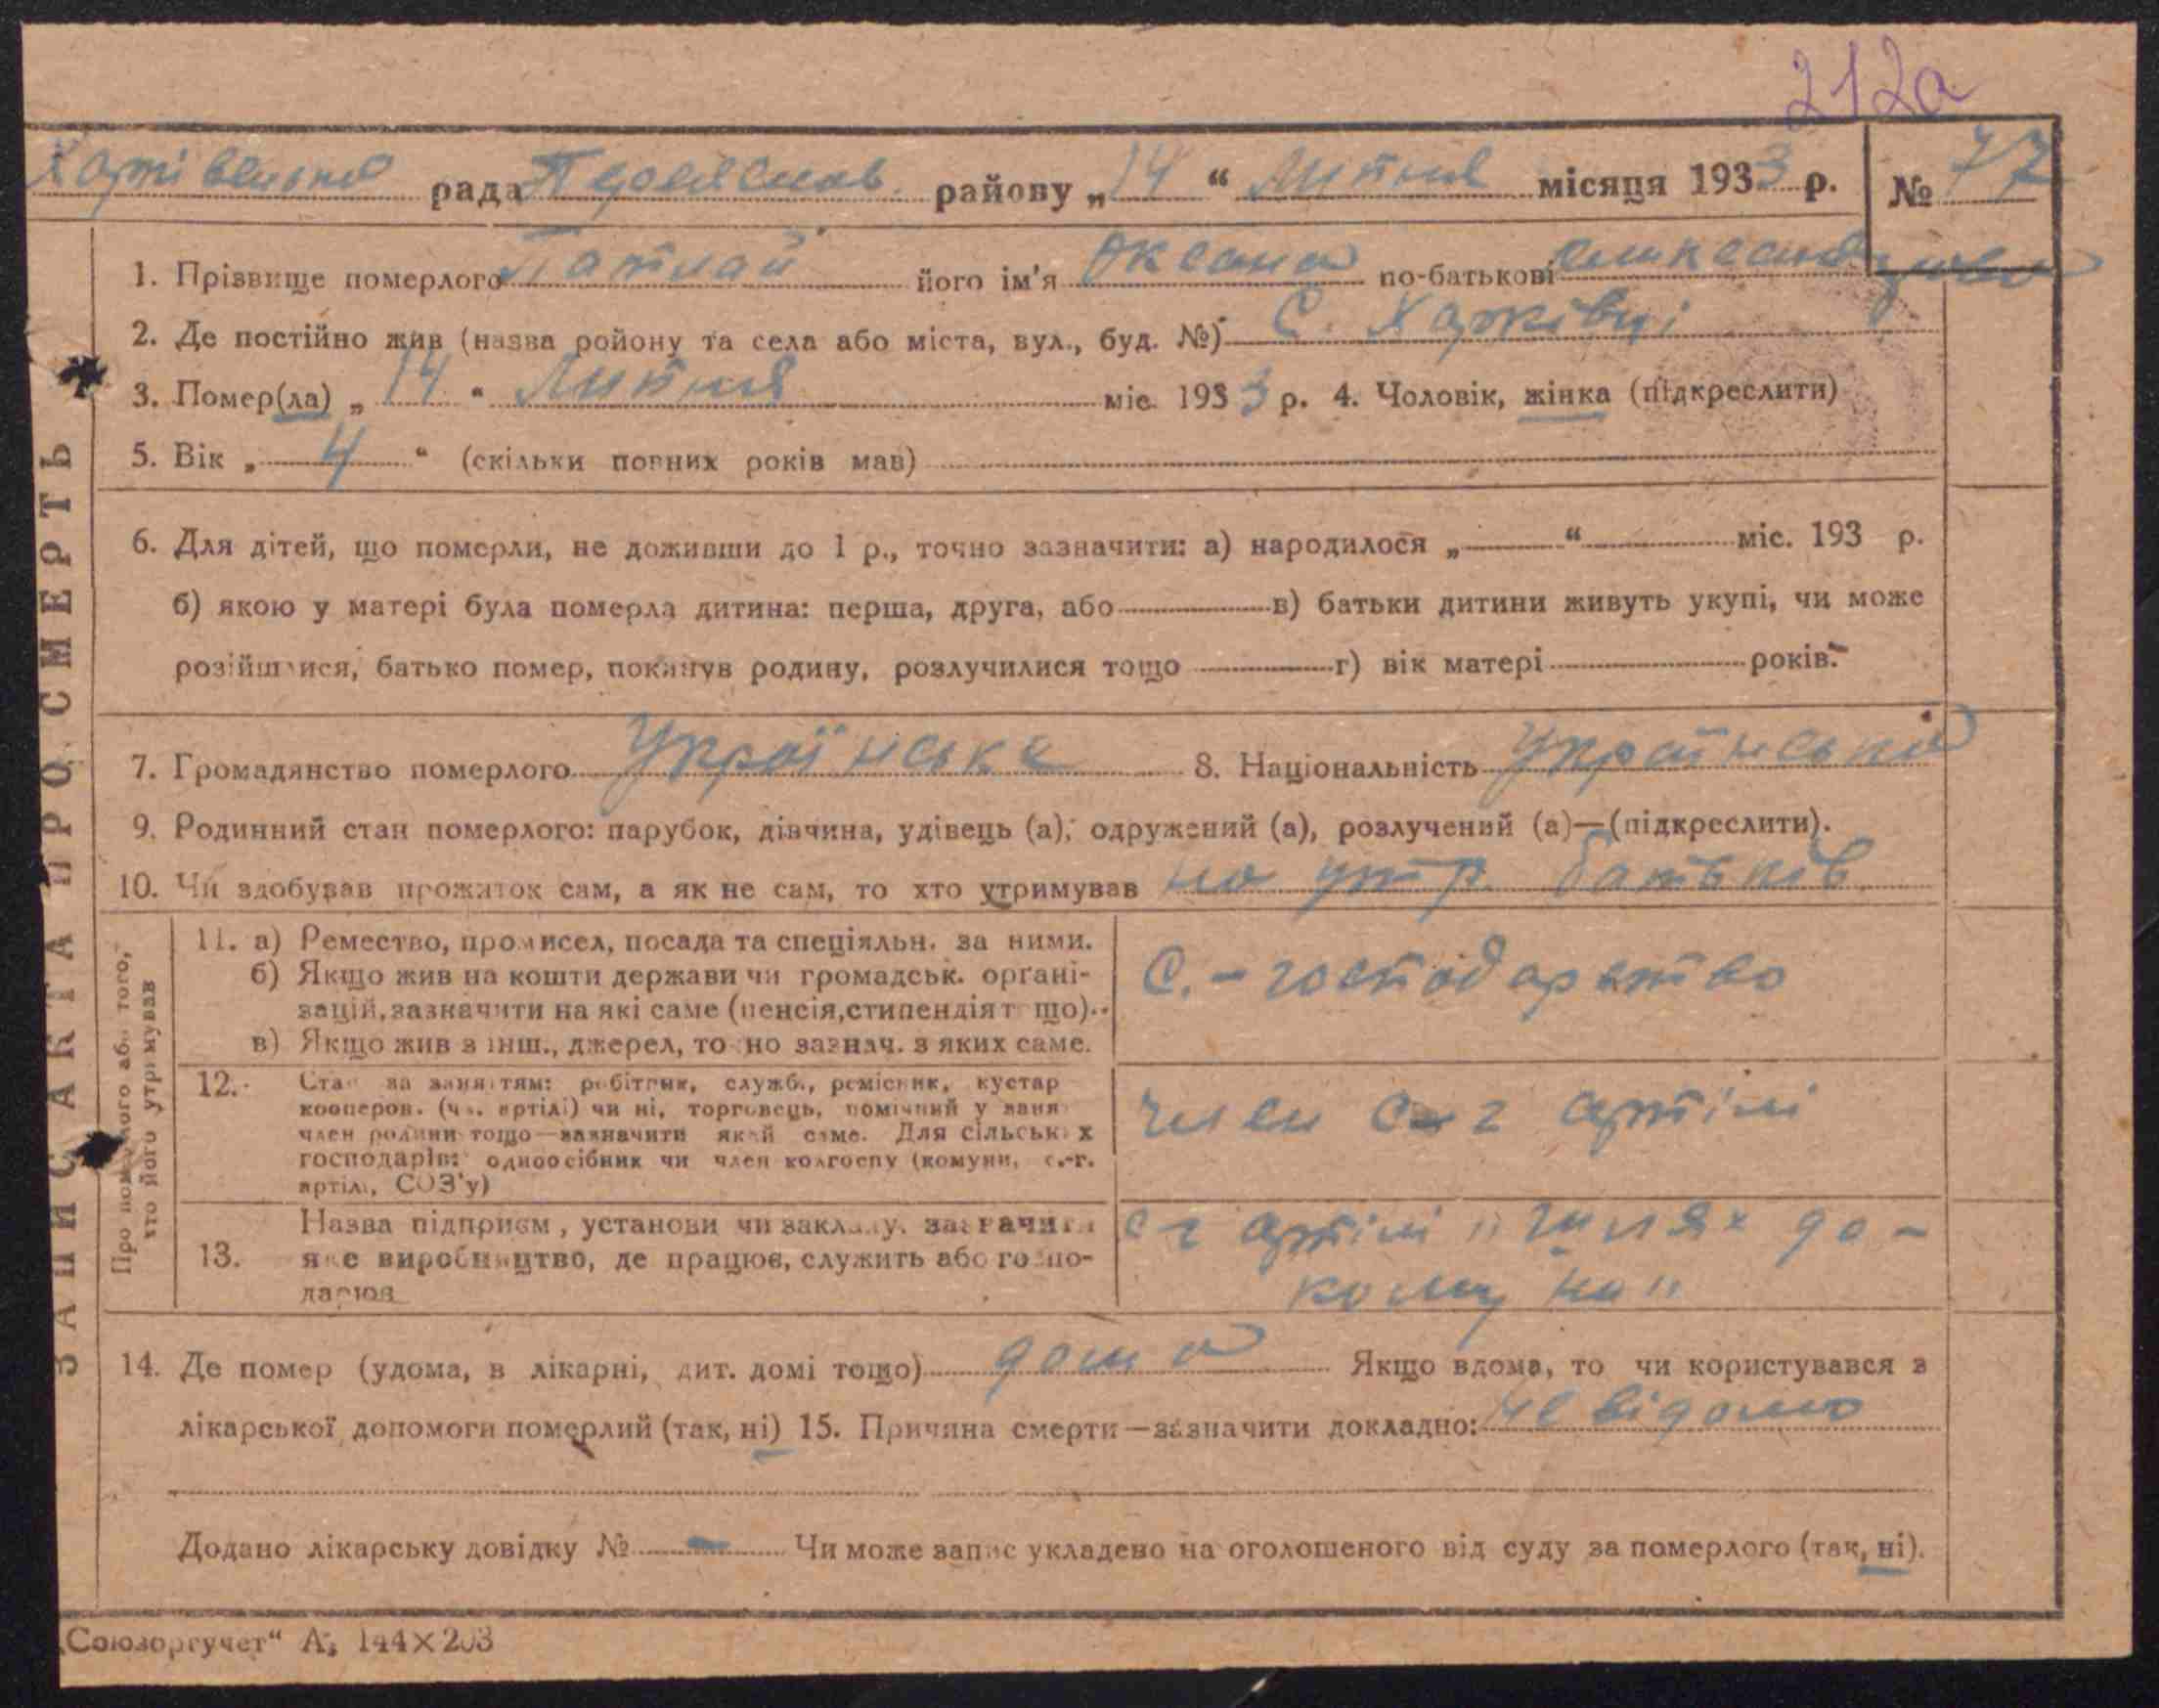 212а
Харківецька рада Переяслов. району „14“ Липня місяця 1933 р. № 77
1. Прізвище померлого його ім'я Оксана по-батькові
2. Де постійно жив (назва ройону та села або міста, вул., буд. №) С. Харківці
3. Помер(ла) „14“ Липня міс. 1933 р. 4. Чоловік, жінка (підкреслити)
5. Вік „4“ (скільки повних років мав)
6. Для дітей, що померли, не доживши до 1 р., точно зазначити: а) народилося „ “ міс. 193 р.
б) якою у матері була померла дитина: перша, друга, або в) батьки дитини живуть укупі, чи може
розійшлися, батько помер, покинув родину, розлучилися тощо г) вік матері років.
7. Громадянство померлого Українське 8. Національність Українська
9. Родинний стан померлого: парубок, дівчина, удівець (а), одружений (а), розлучений (а)—(підкреслити).
10. Чи здобував прожиток сам, а як не сам, то хто утримував на утр. батьків
ЗАПИС АКТА ПРО СМЕРТЬ
Про померлого або того,
хто його утримував
11. а) Ремество, промисел, посада та спеціяльн. за ними.
б) Якщо жив на кошти держави чи громадськ. орґані-
зацій, зазначити на які саме (пенсія, стипендія т що)..
в) Якщо жив з інш., джерел, точно зазнач. з яких саме.
С.-господарство
12. Стан за заняттям: робітник, службо, ремісник, кустар
кооперов. (чл. артілі) чи ні, торговець, помічний у заня
член родини тощо—зазначити який саме. Для сільських
господарів: одноосібник чи член колгоспу (комуни, с.-г.
артілі, СОЗ'у)
член с-г артіли
13. Назва підприєм, установи чи закладу, зазначити
яке виробництво, де працює, служить або госпо-
дарює
с-г артіли „Шлях до-
комуни"
14. Де помер (удома, в лікарні, дит. домі тощо) дома Якщо вдома, то чи користувався з
лікарської допомоги померлий (так, ні) 15. Причина смерти—зазначити докладно: не відомо
Додано лікарську довідку № – Чи може запис укладено на оголошеного від суду за померлого (так, ні).
„Союзоргучет“ А, 144×203